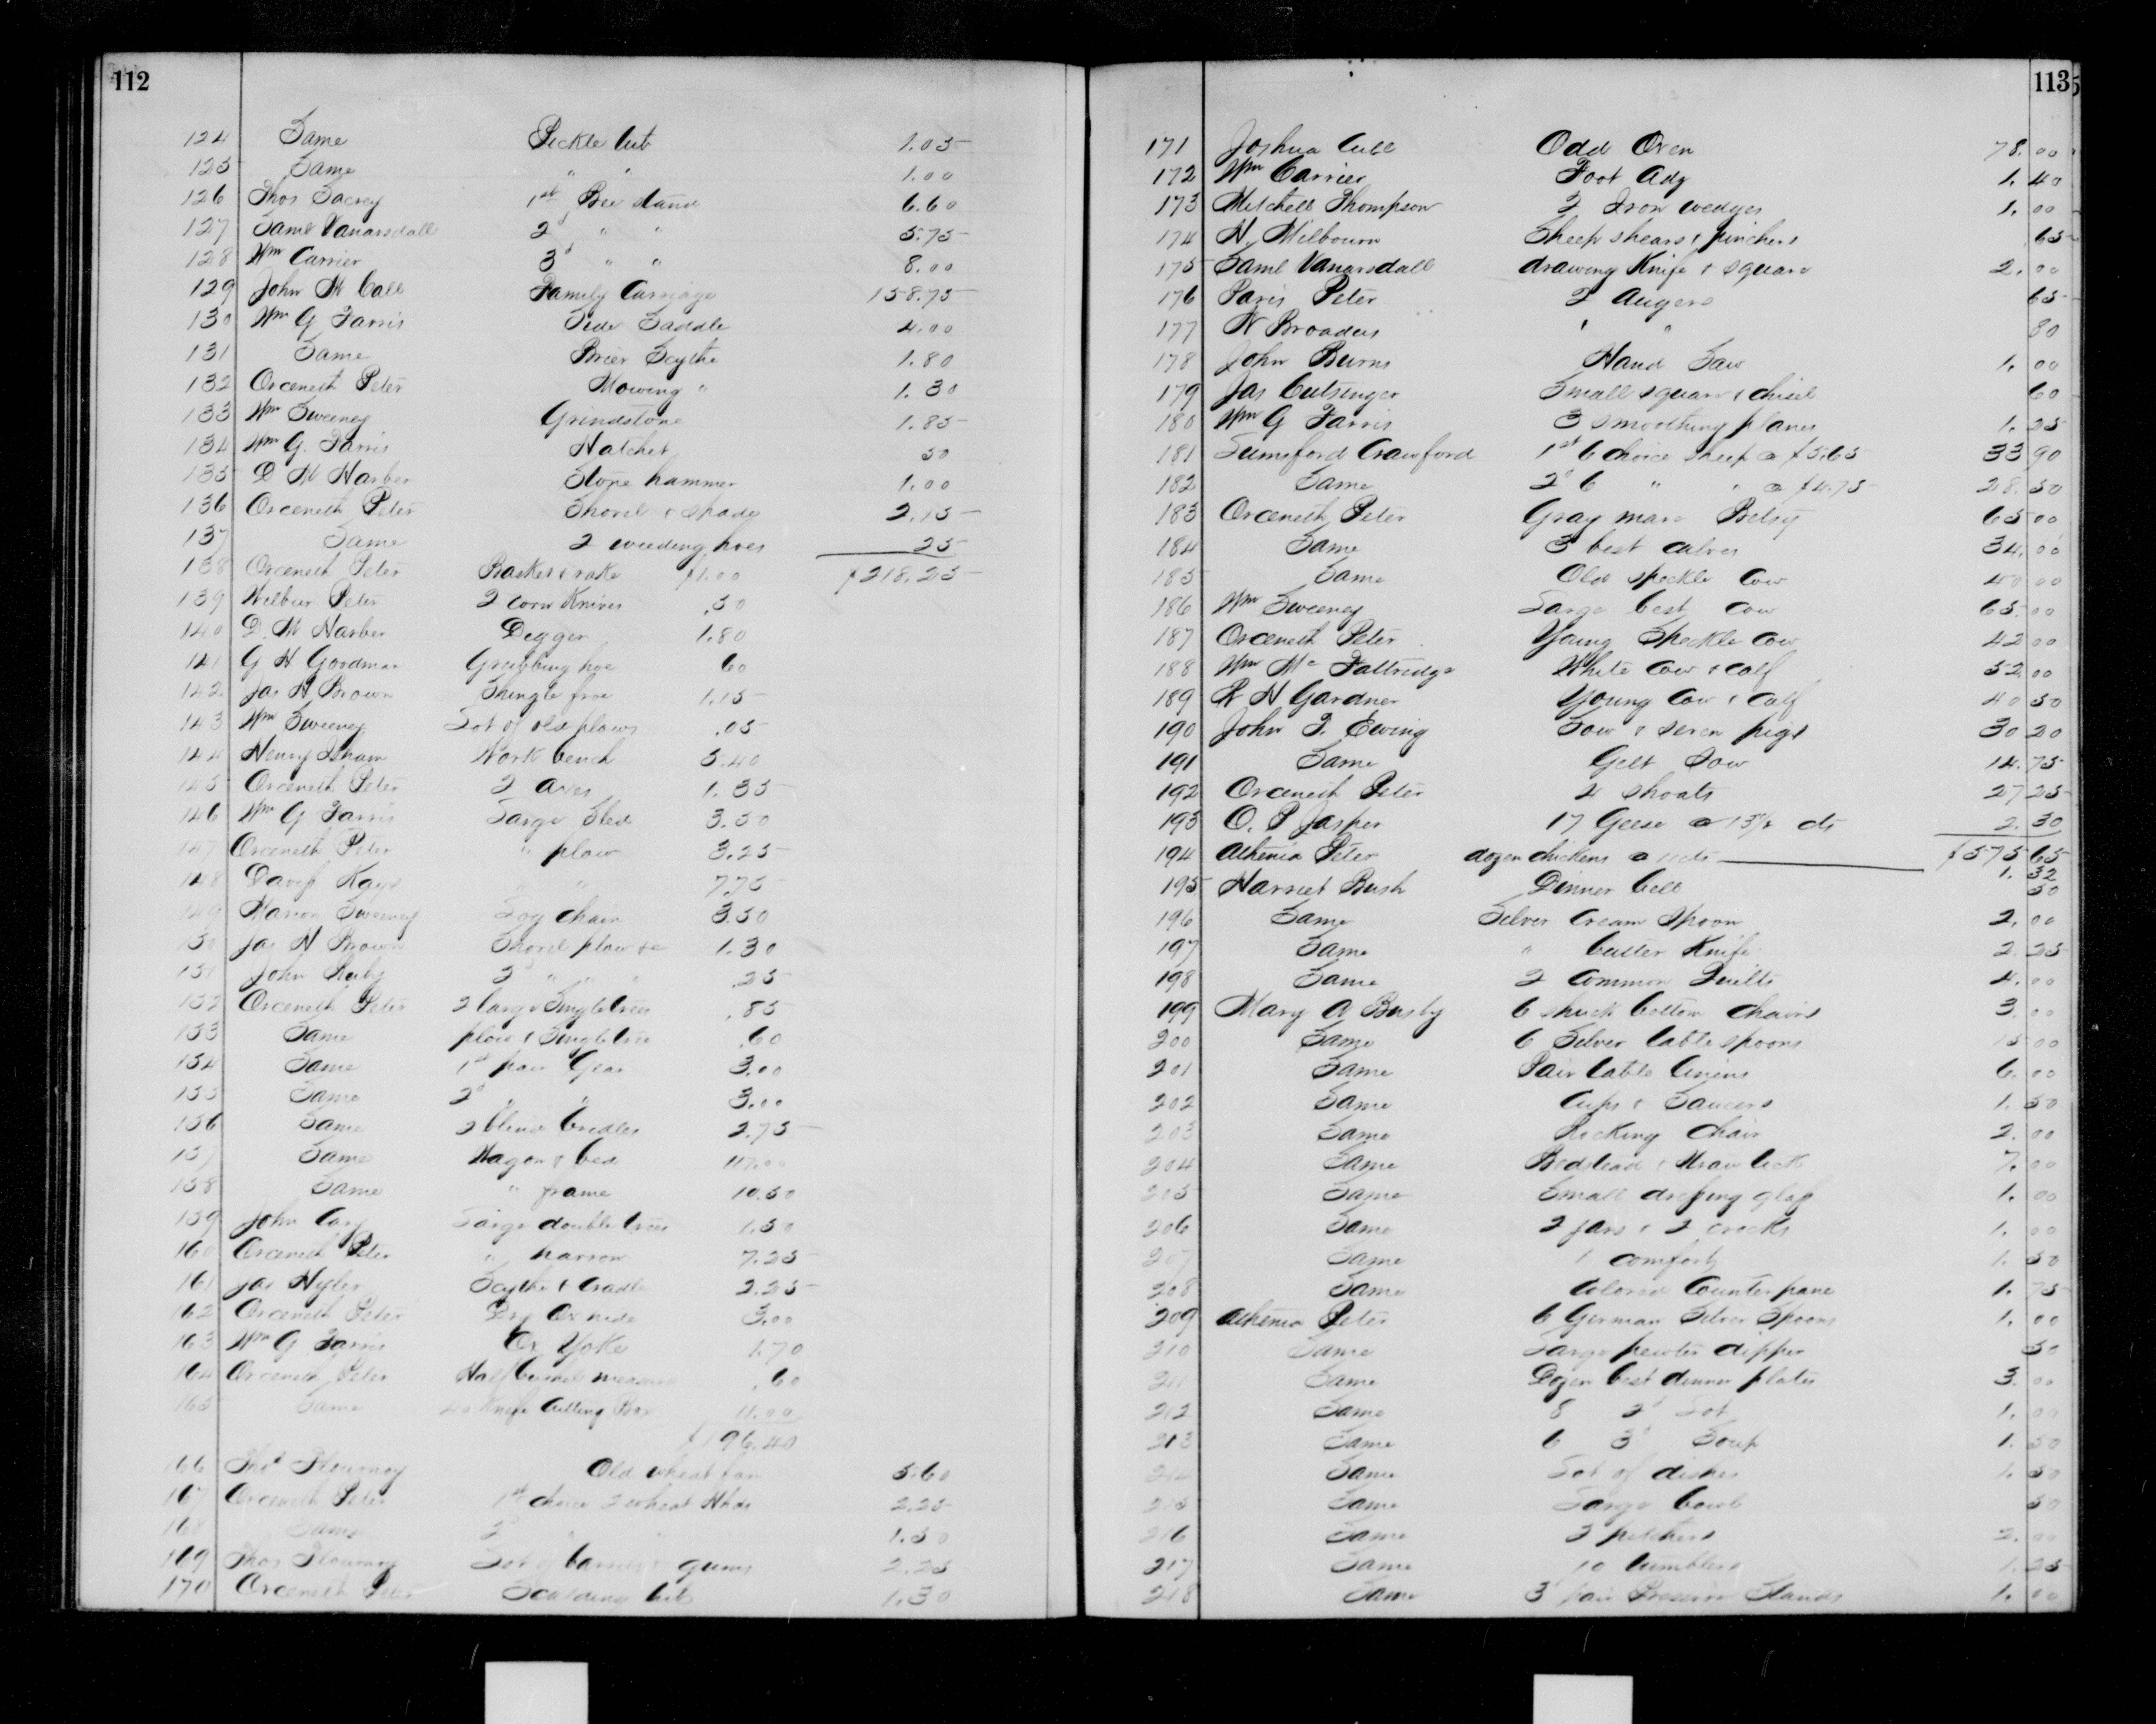 112
124 Same Pickle tub 1.05
125 Same " " 1.00
126 Thos Sacrey 1st Bee stand 6.60
127 Saml Vanarsdall 2d " " 5.75
128 Wm Carrier 3d " " 8.00
129 John M Call Family Carriage 158.75
130 Wm G Farris Side Saddle 4.00
131 Same Brier Scythe 1.80
132 Orceneth Peter Mowing " 1.30
133 Wm Sweeney Grindstone 1.85
134 Wm G. Farris Hatchet 50
135 D M Harber Stone hammer 1.00
136 Orceneth Peter Shovel & spade 2.15
137 Same 2 weeding hoes 25
138 Orceneth Peter Basket & rake $1.00 $218.25
139 Wilbur Peter 2 corn Knives .50
140 D. M Harber Digger 1.80
141 G H Goodman Grubbing hoe 60
142 Jas H Brown Shingle froe 1.15
143 Wm Sweeney Lot of old plows .05
144 Henry Isham Work bench 5.40
145 Orceneth Peter 2 axes 1.35
146 Wm G Farris Large Sled 3.50
147 Orceneth Peter " plow 3.25
148 Davis Kays " " 7.75
149 Marion Sweeney Log chain 3.50
150 Jas H Brown Shovel plow &c 1.30
151 John 2d " " .25
152 Orceneth Peter 2 large Singletrees .85
153 Same plow & Singletree .60
154 Same 1st pair Gear 3.00
155 Same 2d " " 3.00
156 Same 2 blind bridles 2.75
157 Same Wagon & bed 117.00
158 Same " frame 10.50
159 John Cary Large doubletrees 1.50
160 Orceneth Peter " harrow 7.25
161 Jas Hyler Scythe & Cradle 2.25
162 Orceneth Peter Dry Ox hide 3.00
163 Wm G Farris Ox Yoke 1.70
164 Orceneth Peter Half bushel measure .60
165 Same Knife Cutting Box 11.00
$196.40
166 Thos Flournoy Old wheat fan 5.60
167 Orceneth Peter 1st choice 2 wheat Hhds 2.25
168 Same 2d " " 1.50
169 Thos Flournoy Lot of barrels & gums 2.25
170 Orceneth Peter Scalding tub 1.30
113
171 Joshua Odd Oxen 78.00
172 Wm Carrier Foot Adz 1.40
173 Mitchell Thompson 2 Iron wedges 1.00
174 N. Milbourn Sheep shears & pinchers 65
175 Saml Vanarsdall drawing Knife & square 2.00
176 Paris Peter 2 Augers 65
177 W Broaddus " " 80
178 John Burns Hand Saw 1.00
179 Jas Cutsinger Small square & chisel 60
180 Wm G Farris 3 smoothing planes 1.25
181 Crawford 1st 6 choice sheep @ $5.65 33 90
182 Same 2d 6 " " @ $4.75 28.50
183 Orceneth Peter Gray mare Betsy 65 00
184 Same 3 best calves 34.00
185 Same Old speckle Cow 40 00
186 Wm Sweeney Large best cow 65.00
187 Orceneth Peter Young Speckle cow 42 00
188 Wm Mc White cow & calf 52.00
189 R H Gardner Young Cow & Calf 40 50
190 John Ewing Sow & seven pigs 30 20
191 Same Gelt Sow 14.75
192 Orceneth Peter 4 shoats 27 25
193 O. P Jasper 17 Geese @ 13½ cts 2.30
194 Athenia Peter dozen chickens @ 11cts $575 65
1.32
195 Harriet Bush Dinner bell 50
196 Same Silver Cream Spoon 2.00
197 Same " butter Knife 2.25
198 Same 2 Common Quilts 4.00
199 Mary A Busby 6 shuck bottom chairs 3.00
200 Same 6 Silver table spoons 15 00
201 Same Pair table linens 6.00
202 Same Cups & Saucers 1.50
203 Same Rocking chair 2.00
204 Same Bedstead & Straw tick 7.00
205 Same Small dressing glass 1.00
206 Same 2 jars & 2 crocks 1.00
207 Same 1 comfort 1.50
208 Same Colored Counterpane 1.75
209 Athenia Peter 6 German Silver Spoons 1.00
210 Same Large pewter dipper 50
211 Same Dozen best dinner plates 3.00
212 Same 8 2d Lot 1.00
213 Same 6 3d Soup 1.50
214 Same Lot of dishes 1.50
215 Same Large bowl 50
216 Same 3 pitchers 2.00
217 Same 10 tumblers 1.25
218 Same 3 pair Preserve Stands 1.00